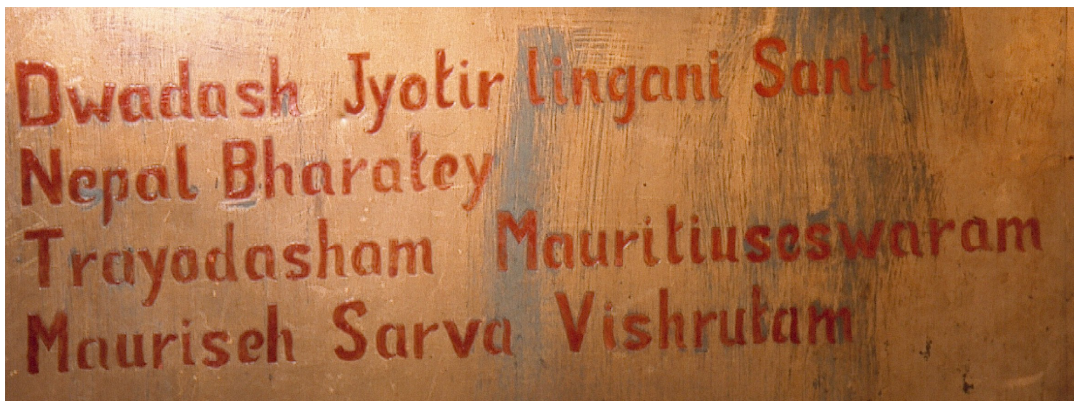 Dwadash Jyotir lingani Santi
Nepal Bharatey
Trayodasham Mauritiuseswaram
Mauriseh Sarva Vishrutam